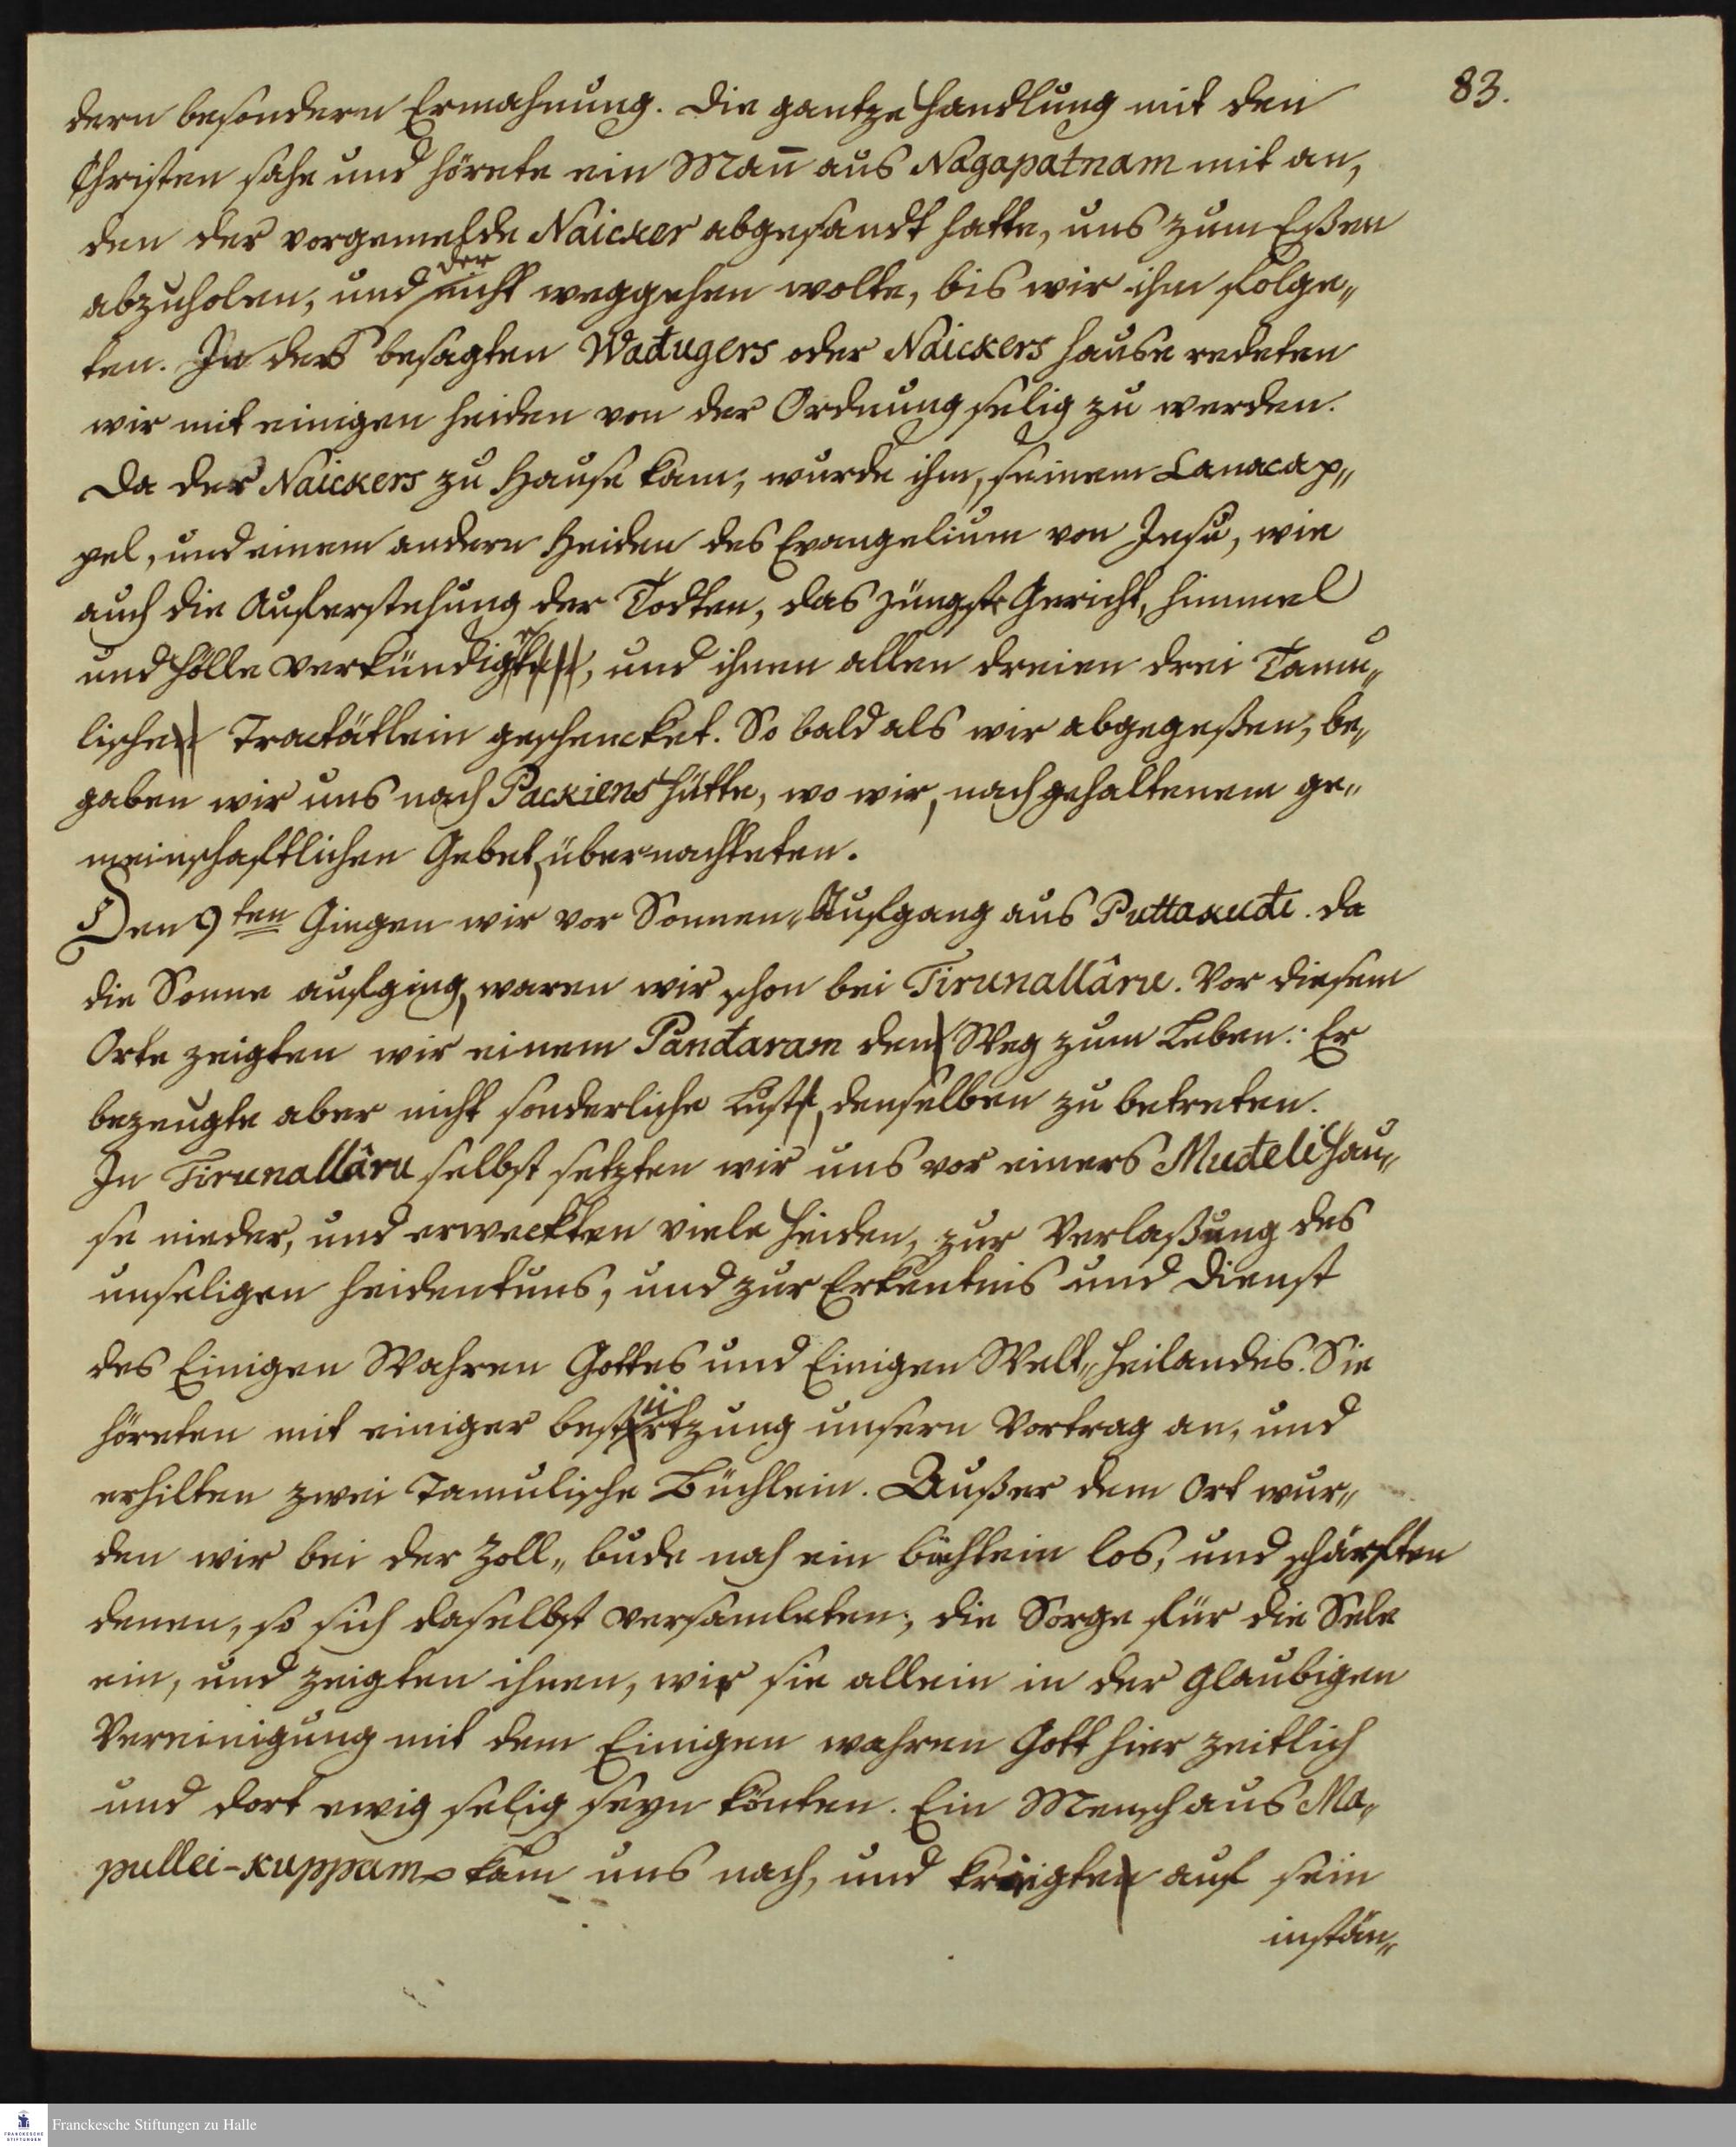 83.
dern besondern Ermahnung. Die gantze Handlung mit den
Christen sahe und hörete ein Man̄ aus Nagapatnam mit an,
den der vorgemelde Naicker abgesandt hatte, uns zum Eßen
abzuholen, und der nicht weggehen wolte, bis wir ihm folge„
ten. In des besagten Wadugers oder Naickers Hause redeten
wir mit einigen Heiden von der Ordnung selig zu werden.
Da der Naickers zu Hause kam, wurde ihm, seinem Canacap„
pel, und einem andern Heiden das Evangelium von Jesu, wie
auch die Auferstehung der Todten, das jüngste Gericht, Himmel
und Hölle verkündigt, und ihnen allen dreien drei Tamu„
lische Tractätlein geschencket. So bald als wir abgegeßen, be„
gaben wir uns nach Packiens Hütte, wo wir, nach gehaltenem ge„
meinschaftlichen Gebet, übernachteten.
Den 9ten Gingen wir vor Sonnen„Aufgang aus Puttakudi. da
die Sonne aufging, waren wir schon bei Tirunallâru. Vor diesem
Orte zeigten wir einem Pandaram den Weg zum Leben: Er
bezeugte aber nicht sonderliche Lust, denselben zu betreten.
In Tirunallâru selbst setzten wir uns vor einers Mudeli Hau„
se nieder, und erweckten viele Heiden, zur Verlaßung des
unseligen Heidentums, und zur Erkentnis und Dienst
des Einigen Wahren Gottes und Einigen Welt„Heilandes. Sie
höreten mit einiger bestürtzung unsern Vortrag an, und
erhilten zwei Tamulische Büchlein. Außer dem Ort wur„
den wir bei der Zoll„bude noch ein büchlein los, und schärften
denen, so sich daselbst versamleten, die Sorge für die Sele
ein, und zeigten ihnen, wie sie allein in der glaubigen
Vereinigung mit dem Einigen wahren Gott hier zeitlich
und dort ewig selig seyn könten. Ein Mensch aus Ma„
pullei-kuppam kam uns nach, und kriigte auf sein
instän„
Franckesche Stiftungen zu Halle
FRANCKESCHE
STIFTUNGEN